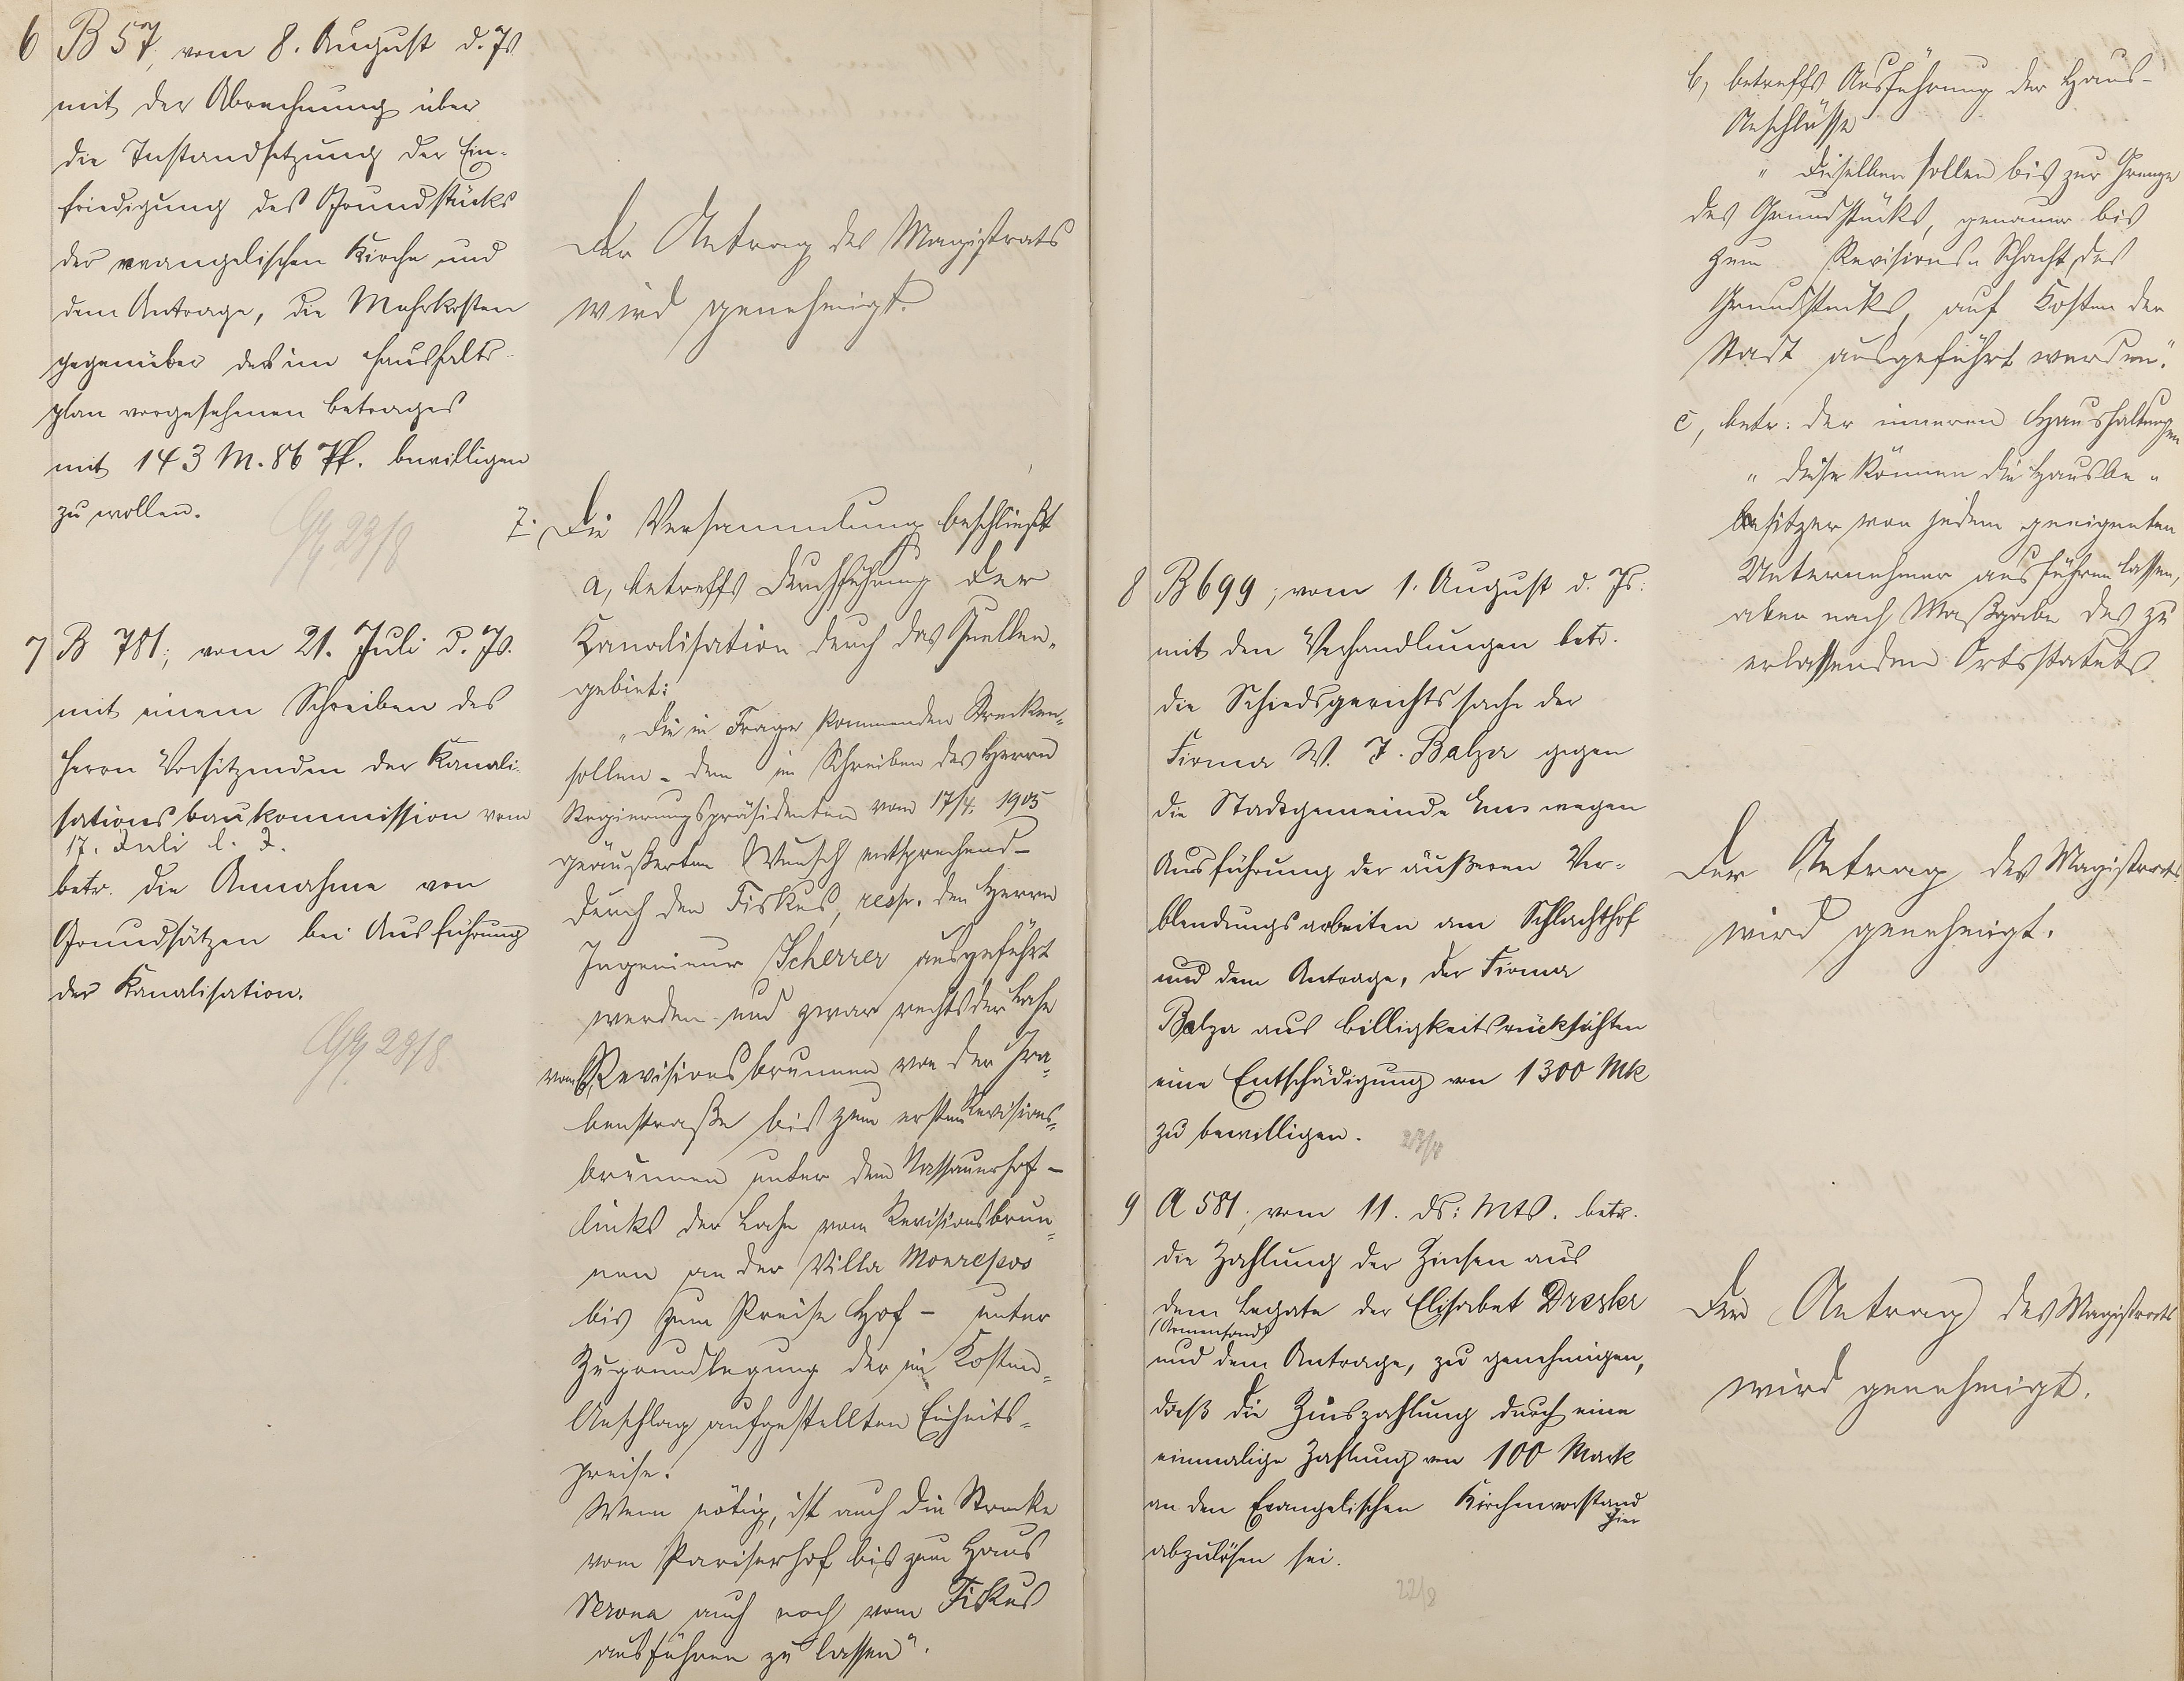 6 B 57, vom 8. August d. Js.
mit der Abrechnung über
die Instandsetzung der Ein-
friedigung des Grundstücks
der evangelischen Kirche und
dem Antrage, die Mehrkosten
gegenüber des im Haushalts-
plan vorgesehenen Betrages
mit 143 M. 86 Pf. bewilligen
zu wollen.
23/8
7 B 781, vom 21. Juli d. Js.
mit einem Schreiben des
Herrn Vorsitzenden der Kanali-
sationsbaukommission vom
17. Juli l. J.
betr. die Annahme von
Grundsätzen bei Ausführung
der Kanalisation.
23/8
Der Antrag des Magistrats
wird genehmigt.
7. Die Versammlung beschließt
a, betreffs Durchführung der
Kanalisation durch das Quellen-
gebiet:
„Die in Frage kommenden Strecken-
sollen - dem im Schreiben des Herrn
Regierungspräsidenten vom 17/4. 1905
geäußerten Wunsch entsprechend -
durch den Fiskus, resp. den Herrn
Ingenieur Scherrer ausgeführt
werden und zwar rechts der Lahn
vom Revisionsbrunnen von der Gra-
benstraße bis zum ersten Revisions-
brunnen unter dem Nassauerhof -
links der Lahn vom Revisionsbrun-
nen an der Villa Monrepos
bis zum Preise Hof - unter
Zugrundlegung der im Kosten-
Anschlag aufgestellten Einheits-
preise.
Wenn nötig, ist auch die Strecke
vom Pariserhof bis zum Haus
Verona auch noch vom Fiskus
ausführen zu lassen“.
8 B 699, vom 1. August d. Js.
mit den Verhandlungen betr.
die Schiedsgerichtssache der
Firma W. J. Balzer gegen
die Stadtgemeinde Ems wegen
Ausführung der äußeren Ver-
blendungsarbeiten am Schlachthof
und dem Antrage, der Firma
Balzer aus Billigkeitsrücksichten
eine Entschädigung von 1300 Mk
zu bewilligen.
23/8
9 A 581, vom 11. ds. Mts. betr.
die Zahlung der Zinsen aus
dem Legate der Elisabet Dresler
(Armenfond)
und dem Antrage, zu genehmigen,
daß die Zinszahlung durch eine
einmalige Zahlung von 100 Mark
an den Evangelischen Kirchenvorstand
hier
abzulösen sei.
22/8
b, betreffs Ausführung der Haus-
Anschlüsse
„Dieselben sollen bis zur Grenze
des Grundstücks, genauer bis
zum Revisions-Schacht des
Grundstücks, auf Kosten der
Stadt ausgeführt werden“.
c, betr. der inneren Haushaltungen
„diese können die Hausbe-
besitzer von jedem geeigneten
Unternehmer ausführen lassen,
aber nach Maßgabe des zu
erlassenden Ortsstatuts.
Der Antrag des Magistrats
wird genehmigt.
Der Antrag des Magistrats
wird genehmigt.